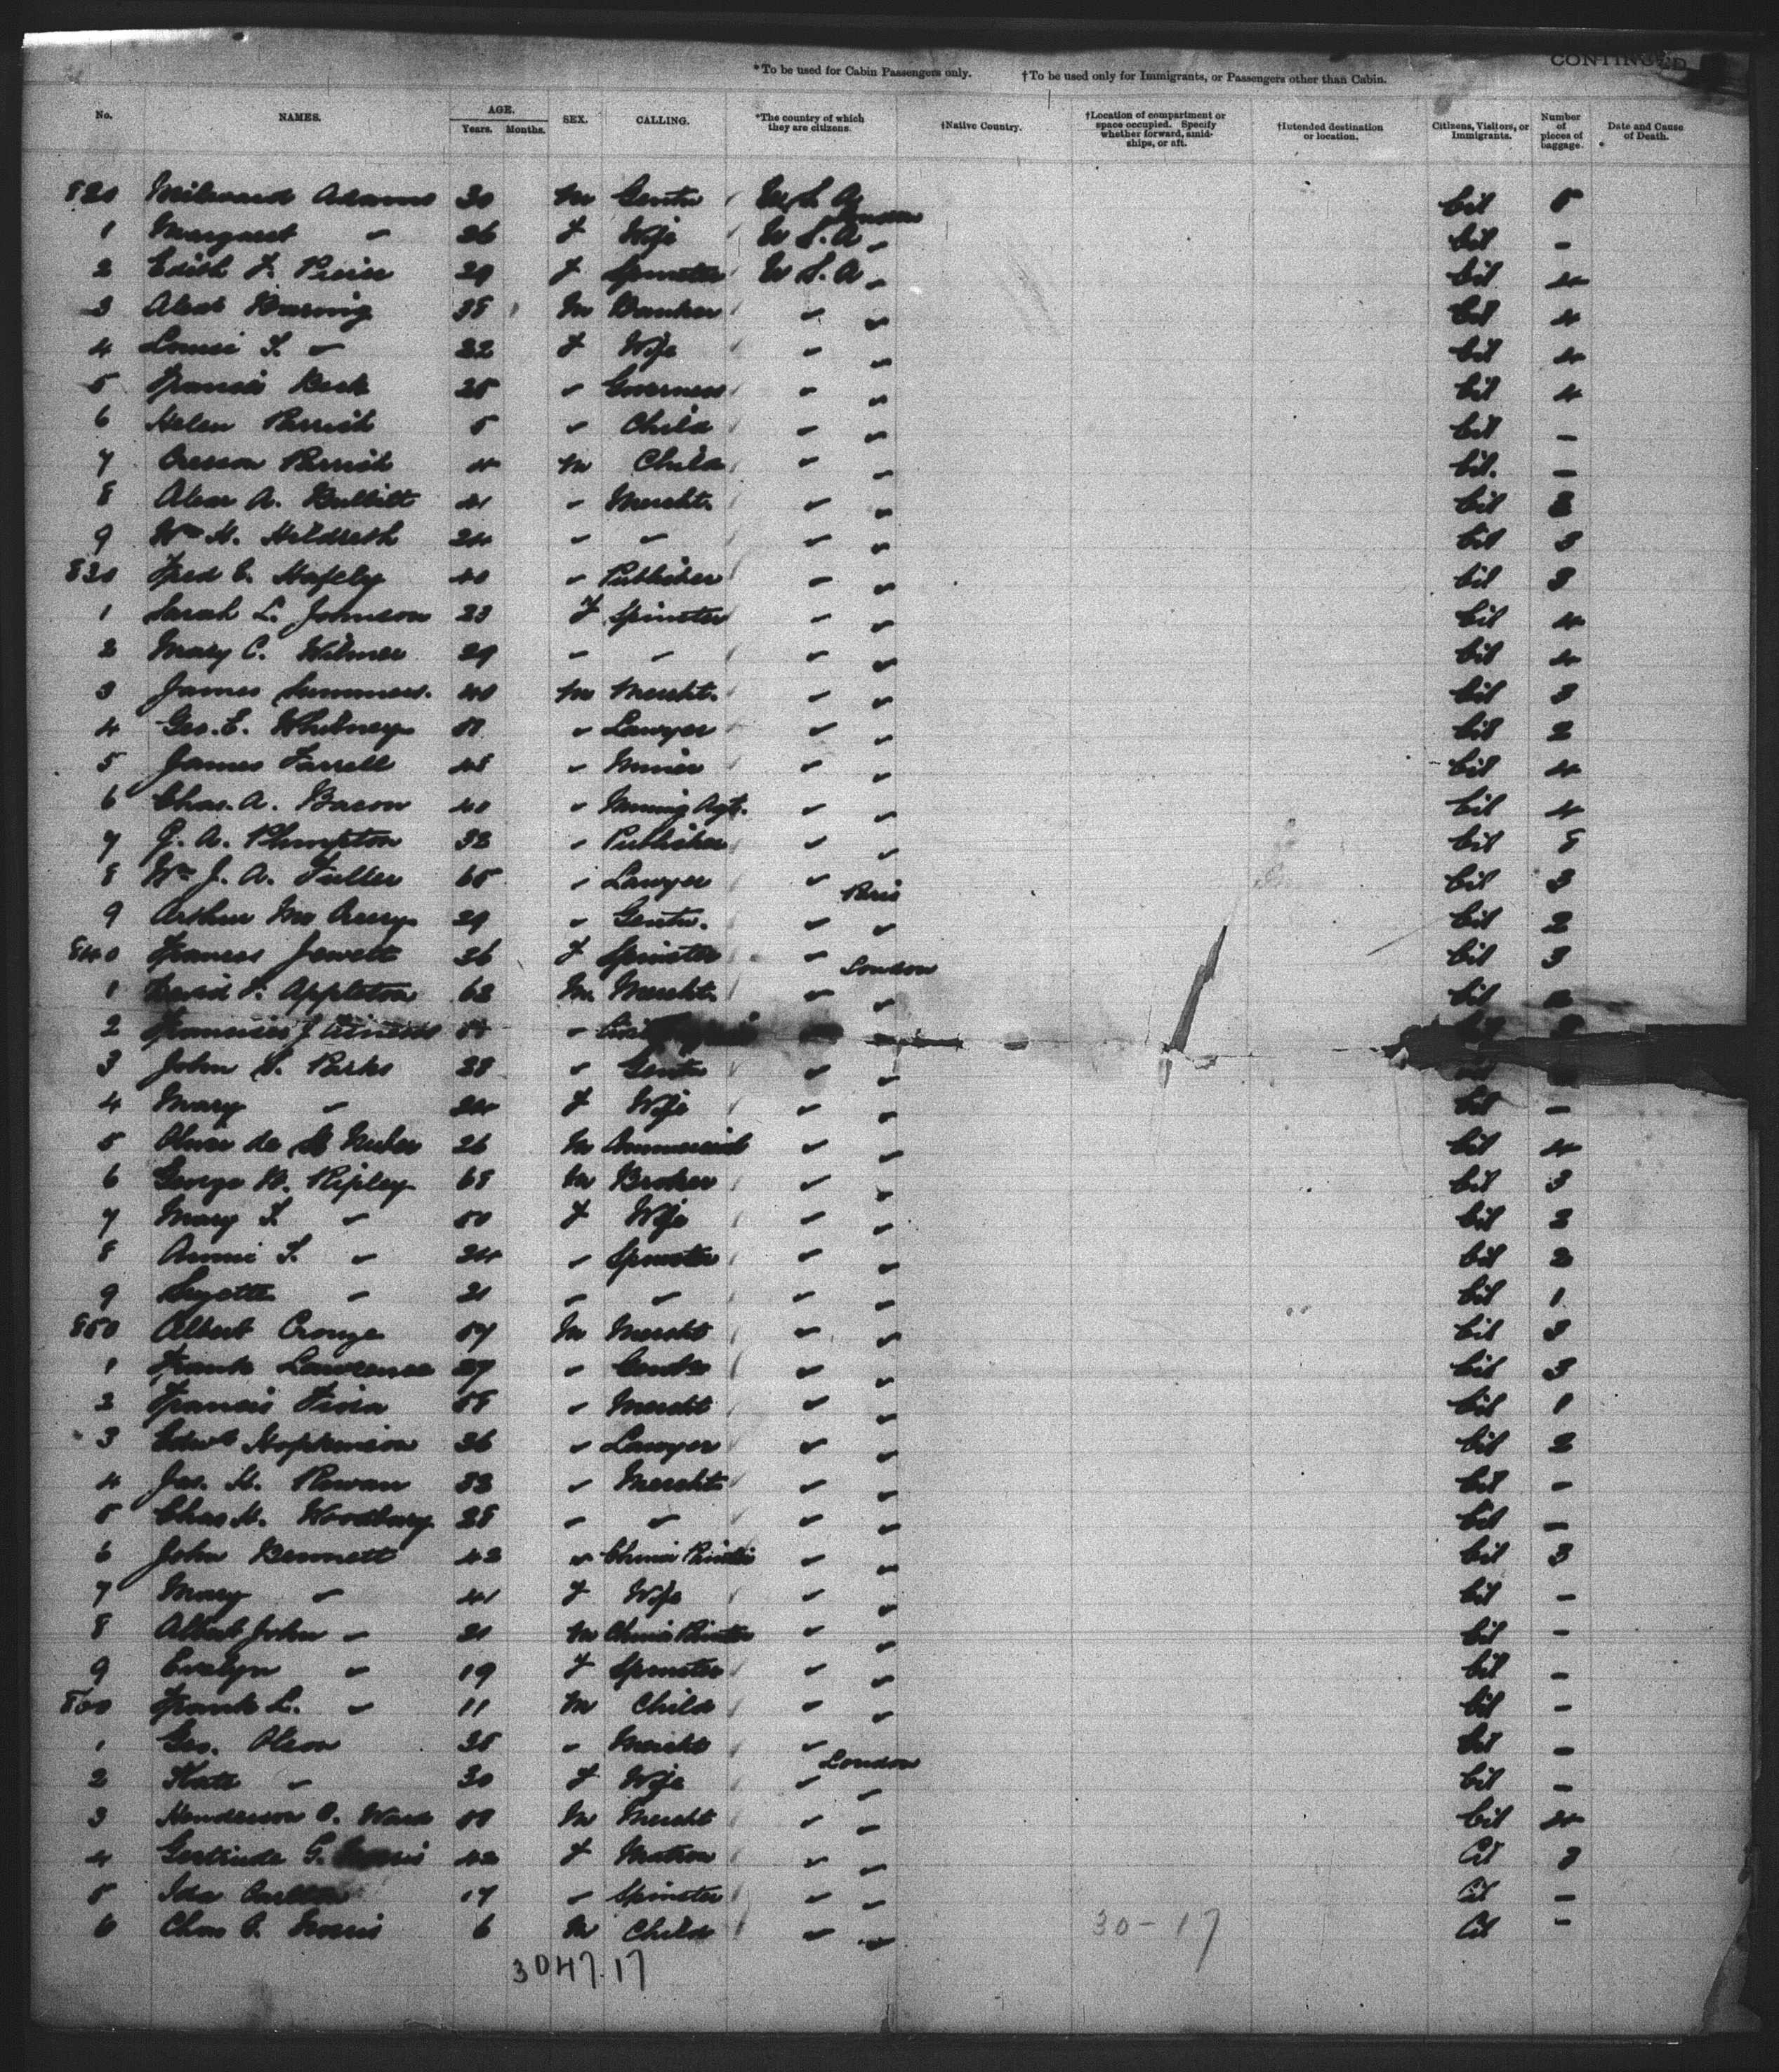 CONTINUED
*To be used for Cabin Passengers only. †To be used only for Immigrants, or Passengers other than Cabin.
No. NAMES. AGE. Years. Months. SEX. CALLING. *The country of which they are citizens. †Native Country. †Location of compartment or space occupied. Specify whether forward, amidships, or aft. †Intended destination or location. Citizens, Visitors, or Immigrants. Number of pieces of baggage. Date and Cause of Death.
820 Milward Adams 30 M Gentn U.S.A. London Cit 5
1 Margaret " 26 F Wife U.S.A. " Cit -
2 Edith F. 29 F Spinster U.S.A. " Cit 4
3 38 M Banker " " Cit 4
4 Louise S. " 32 F Wife " " Cit 4
5 25 " Governess " " Cit 4
6 Helen Parrish 5 " Child " " Cit -
7 Cresson Parrish 4 M Child " " Cit. -
8 Alexr A. Bullitt 41 " Mercht. " " Cit 2
9 Wm H. Hildreth 24 " " " " Cit 3
830 Fred C. 40 " Publisher " " Cit 3
1 Sarah L. Johnson 23 F Spinster " " Cit 4
2 Mary C. Wilmer 29 " " " " Cit 4
3 James Summers. 40 M Mercht. " " Cit 3
4 Geo. E. Whitney " Lawyer " " Cit 2
5 James Farrell 48 " Miner " " Cit 4
6 Chas. A. Bacon 40 " Mining Agt. " " Cit 4
7 G. A. Plimpton 32 " Publisher " " Cit 8
8 Wm J. A. Fuller 65 " Lawyer " Paris Cit 3
9 Arthur 29 " Gentn. " " Cit 2
840 Frances Jewett 26 F Spinster " London Cit 3
1 Appleton 62 M. Mercht. " " Cit
2
3 John S. Parks 28 " Gentn " "
4 Mary " 24 F Wife " " Cit -
5 26 M Commercial " " Cit 4
6 George H. Ripley 68 M Broker " " Cit 3
7 Mary S. " 50 F Wife " " Cit 2
8 Annie S. " 24 " Spinster " " Cit 2
9 " 21 " " " " Cit 1
850 Albert Crouze 57 M Mercht " " Cit 3
1 Frank Lawrence 27 " " " Cit 3
2 Francis 58 " Mercht " " Cit 1
3 Edwd Hopkinson 36 " Lawyer " " Cit 2
4 Jas. H. Rowan 33 " Mercht " " Cit -
5 Chas H. Woodbury 28 " " " " Cit -
6 John Bennett 42 " China Printer " " Cit 3
7 Mary " 41 F Wife " " Cit -
8 Albert John " 21 M China Printer " " Cit -
9 Evelyn " 19 F Spinster " " Cit -
860 Frank L. " 11 M Child " " Cit -
1 Geo. Olson 35 " Mercht " London Cit -
2 Kate " 30 F Wife " " Cit -
3 Henderson A. Ward 50 M Mercht " " Cit 4
4 Gertrude G. 42 F Matron " " Cit 3
5 Ida 17 " Spinster " " Cit -
6 Chas A. Norris 6 M Child " " Cit -
30-17
3047.17